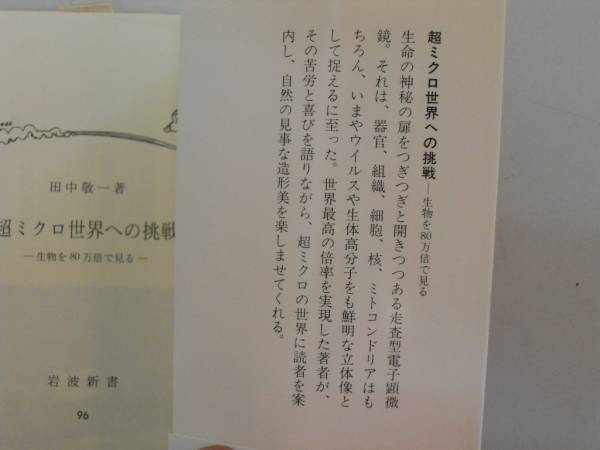 田中敬一著
超ミクロ世界への挑戦
―生物を80万倍で見る―
岩波新書
96
超ミクロ世界への挑戦―生物を80万倍で見る
生命の神秘の扉をつぎつぎと開きつつある走査型電子顕微
鏡。それは、器官、組織、細胞、核、ミトコンドリアはも
ちろん、いまやウイルスや生体高分子をも鮮明な立体像と
して捉えるに至った。世界最高の倍率を実現した著者が、
その苦労と喜びを語りながら、超ミクロの世界に読者を案
内し、自然の見事な造形美を楽しませてくれる。